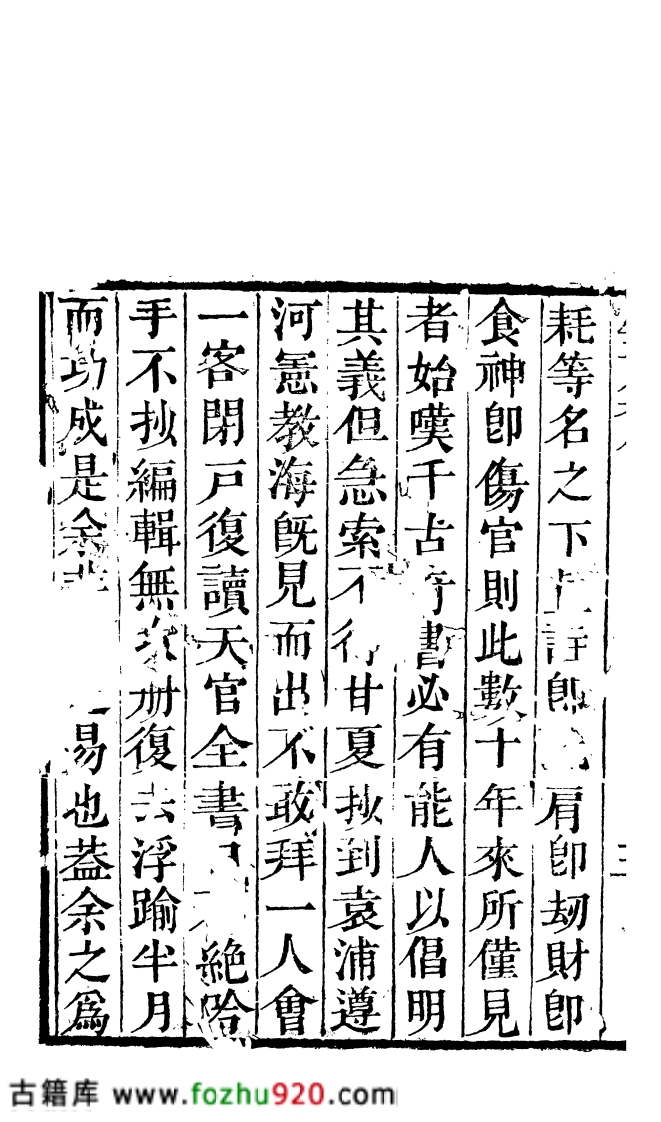 耗等名之下註即肩即刼財即
食神即傷官則此數十年來所僅見
者始嘆千古奇書必有能人以倡明
其義但急索不得甘夏抄到袁浦遵
河憲教海旣見而出不敢拜一人會
一客閉戸復讀天官全書口不絶吟
手不抄編輯無次冊復去浮踰半月
而功成是余非易也葢余之爲
三
古籍库 www.fozhu920.com